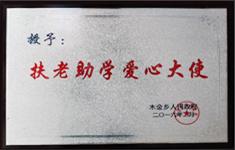 授予：
扶老助学爱心大使
木金乡人民政府
二〇一六年